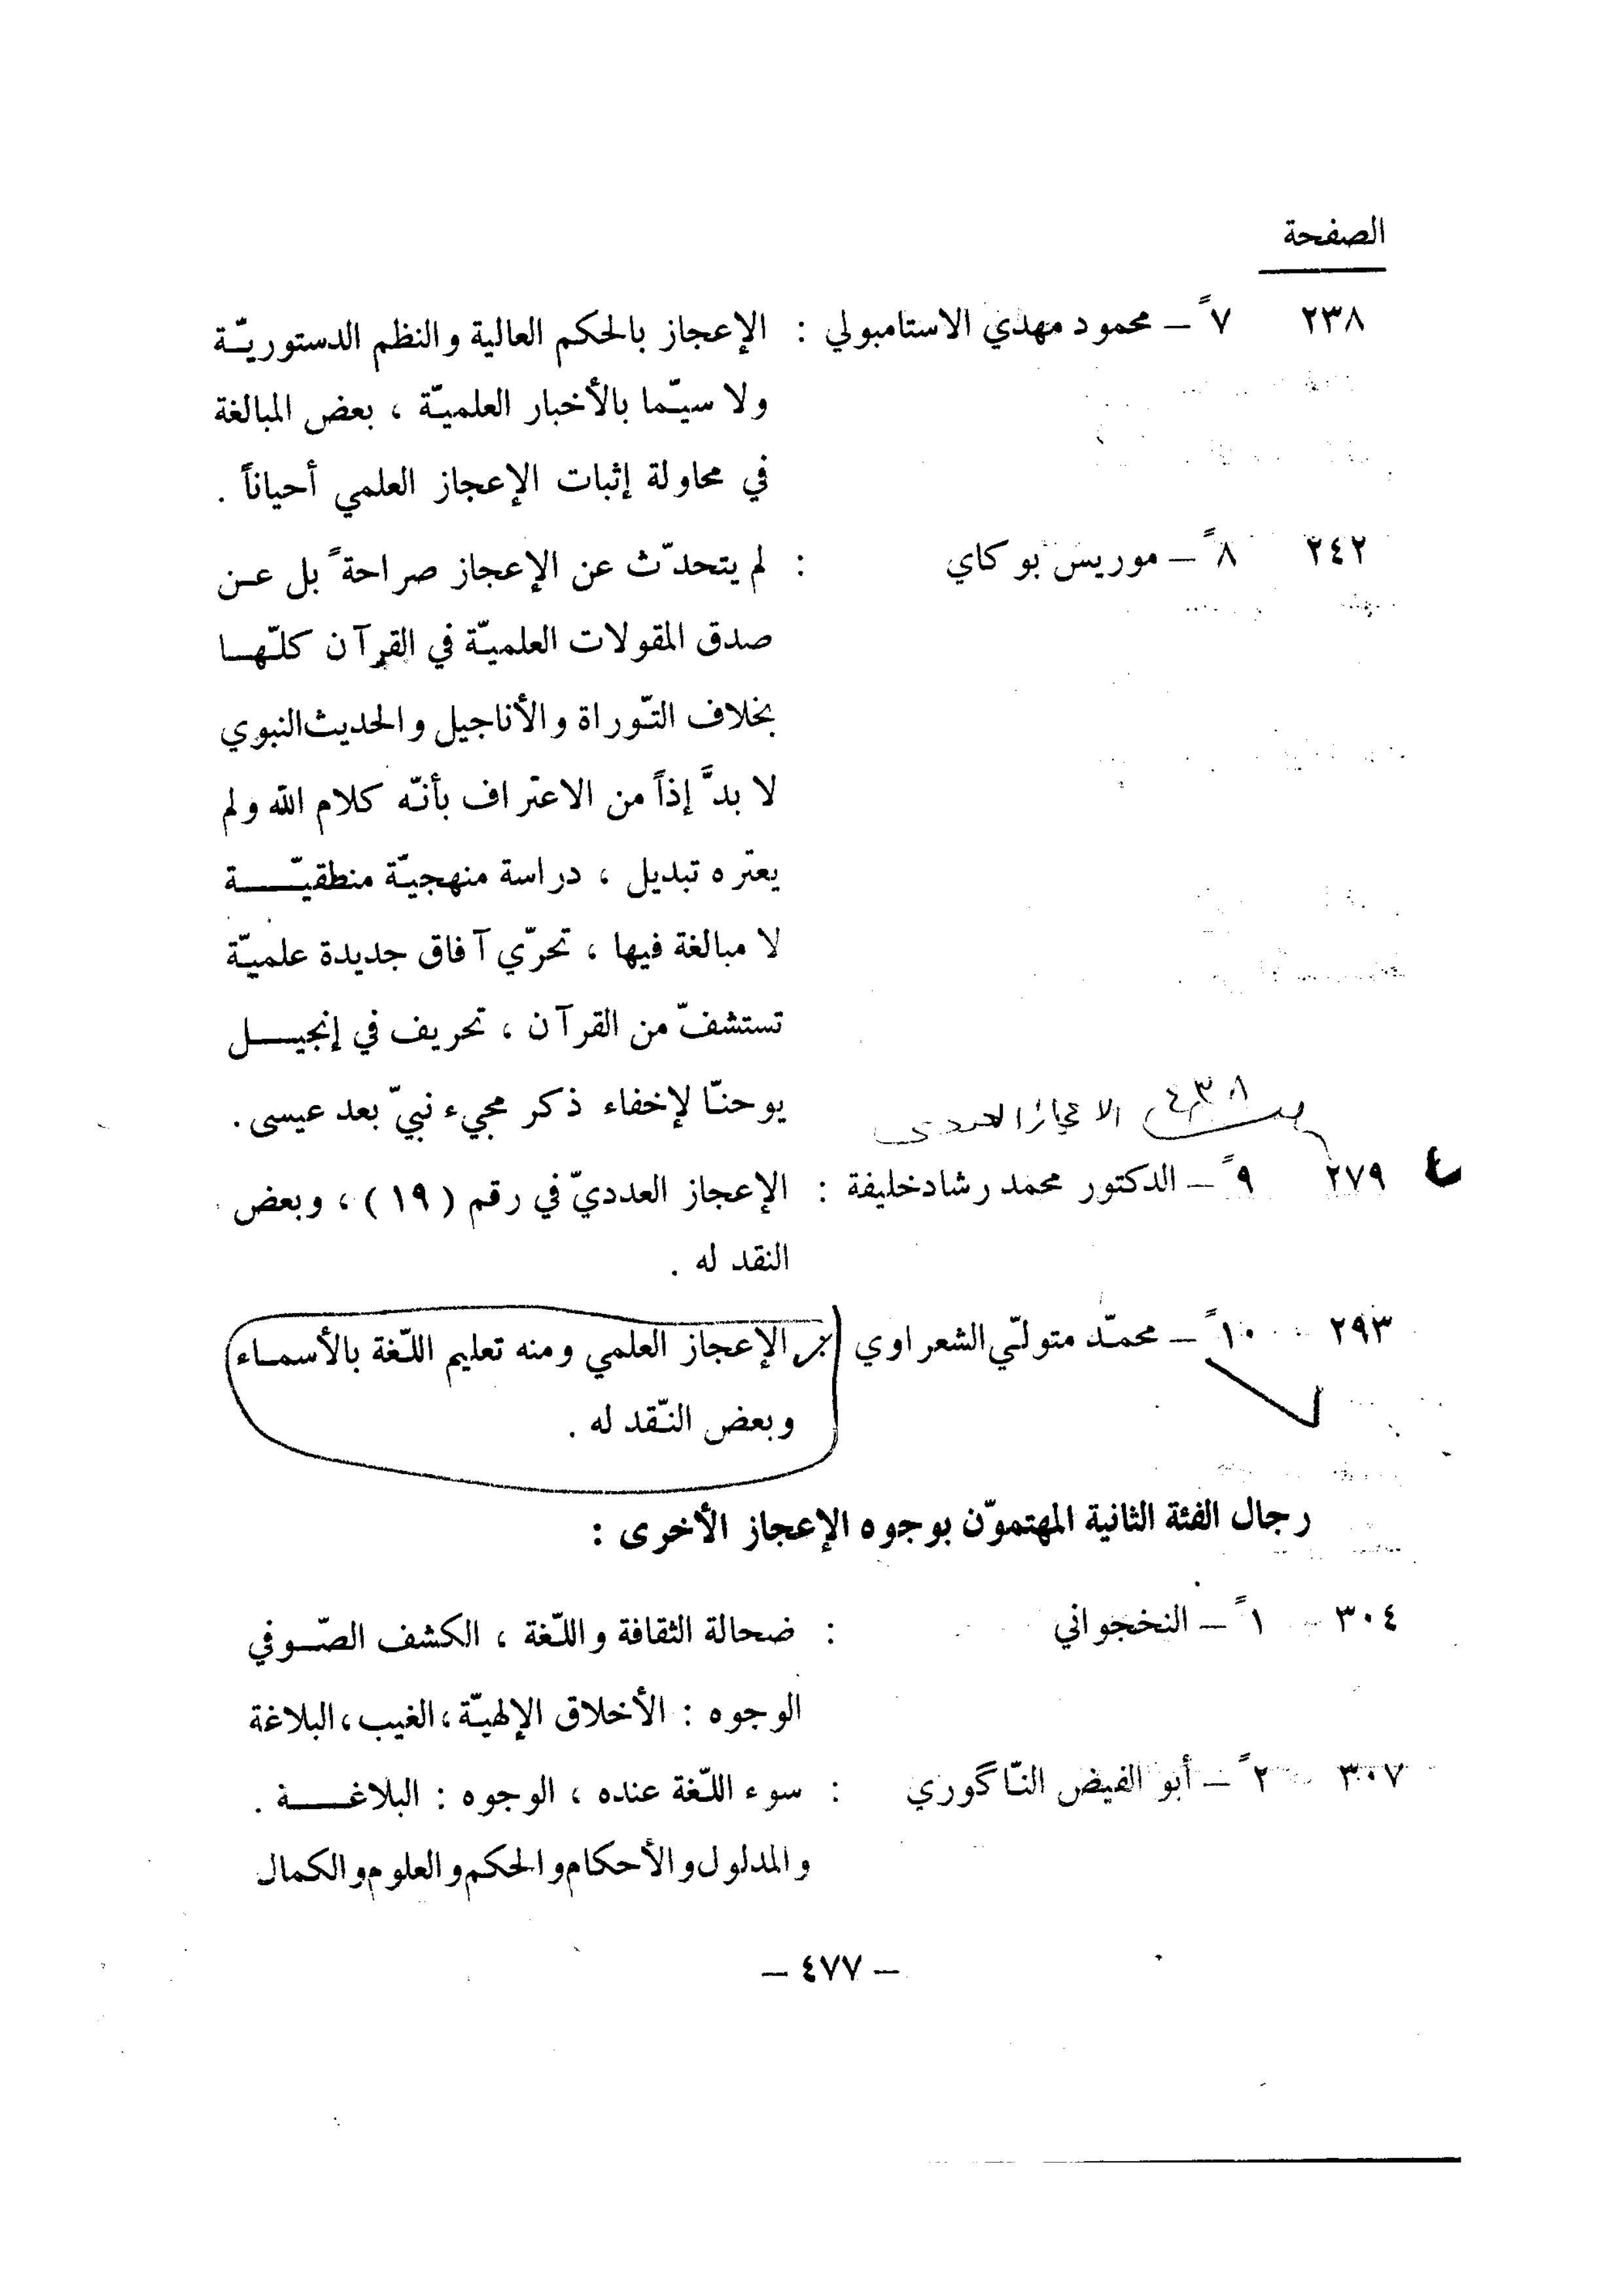 الصفحة
٢٣٨ ٧ً – محمود مهدي الاستامبولي : الإعجاز بالحكم العالية والنظم الدستوريّة
ولا سيّما بالأخبار العلميّة ، بعض المبالغة
في محاولة إثبات الإعجاز العلمي أحياناً .
٢٤٢ ٨ً – موريس بوكاي : لم يتحدّث عن الإعجاز صراحةً بل عن
صدق المقولات العلميّة في القرآن كلّها
بخلاف التّوراة والأناجيل والحديث النبوي
لا بدَّ إذاً من الاعتراف بأنّه كلام الله ولم
يعتره تبديل ، دراسة منهجيّة منطقيّة
لا مبالغة فيها ، تحرّي آفاق جديدة علميّة
تستشفّ من القرآن ، تحريف في إنجيل
يوحنّا لإخفاء ذكر مجيء نبيّ بعد عيسى .
٤٣٨ الاعجاز العددي
٢٧٩ ٩ً – الدكتور محمد رشاد خليفة : الإعجاز العدديّ في رقم ( ١٩ ) ، وبعض
النقد له .
٢٩٣ ١٠ً – محمّد متولّي الشعراوي : الإعجاز العلمي ومنه تعليم اللّغة بالأسماء
وبعض النّقد له .
رجال الفئة الثانية المهتموّن بوجوه الإعجاز الأخرى :
٣٠٤ ١ً – النخجواني : ضحالة الثقافة واللّغة ، الكشف الصّوفي
الوجوه : الأخلاق الإلهيّة ، الغيب ، البلاغة
٣٠٧ ٢ً – أبو الفيض النّاگوري : سوء اللّغة عنده ، الوجوه : البلاغة .
والمدلول والأحكام والحكم والعلوم والكمال
– ٤٧٧ –